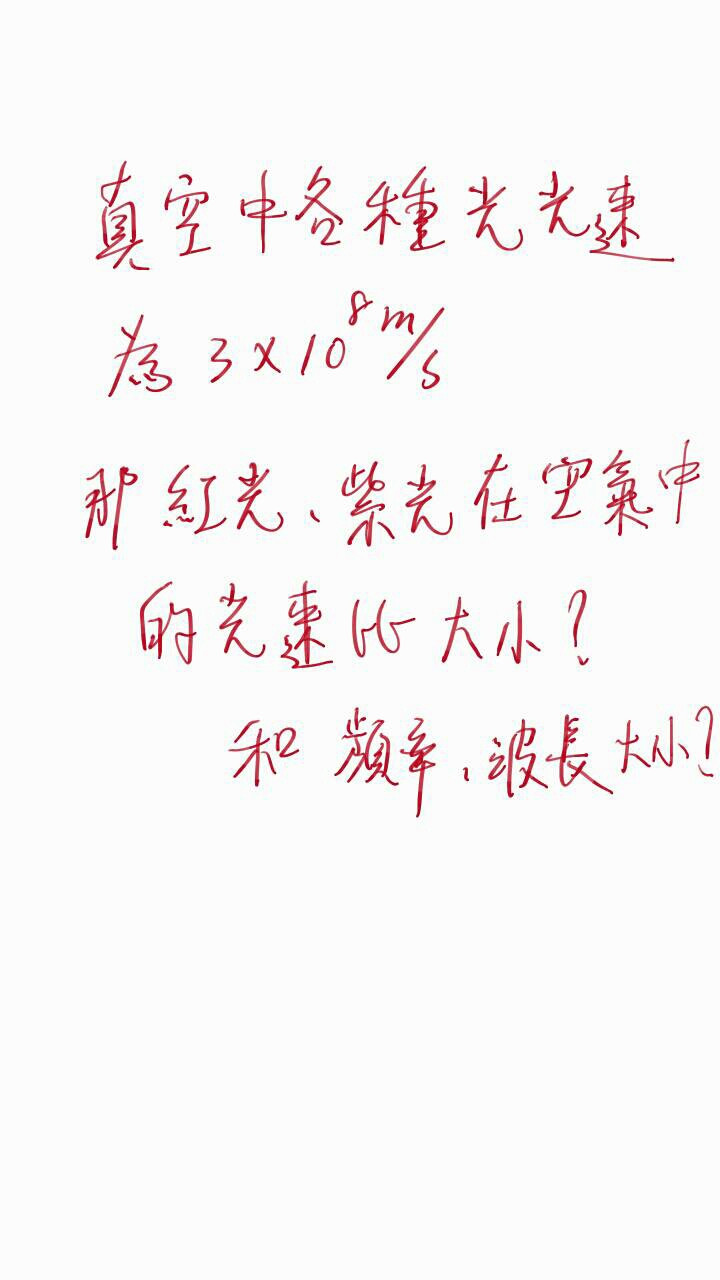 真空中各種光光速
為 3×10⁸ m/s
那紅光、紫光在空氣中
的光速比大小?
和頻率、波長大小?